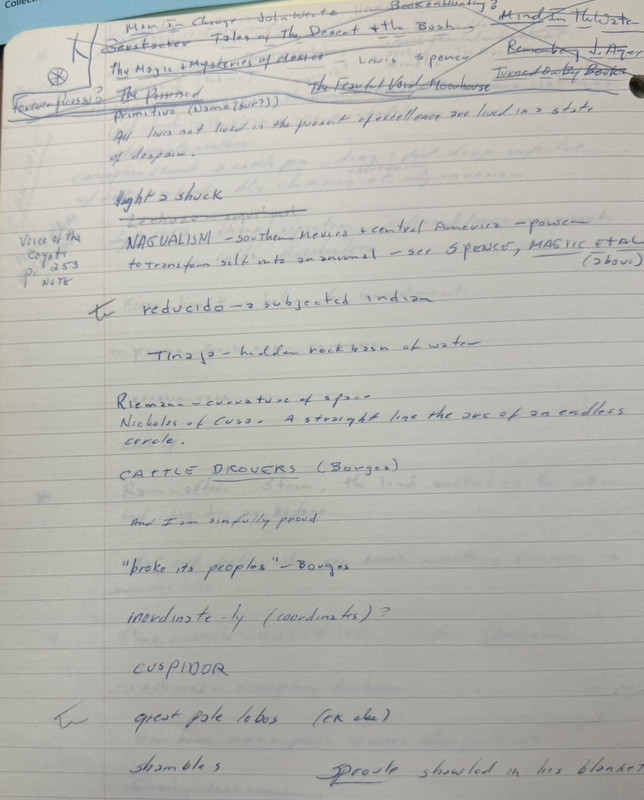 Collec
Book on Hunting?
Man In Change - John White
Mind In The Water
Gerstacker Tales of The Desert & the Bush,
Remember J. Ager
The Magic & Mysteries of Mexico - Lewis Spence
Turned On by Books
The Possessed
The Fearful Void Moorhouse
Primitive (Name? Sur?))
All lives not lived in the present of excellence are lived in a state
of despair.
light a shuck
NAGUALISM - Southern Mexico & central America - power
to transform self into an animal - see SPENCE, MAGIIC ET AL
(above)
Voice of the
Coyote
p. 253
NOTE
reducido - a subjected indian
Tinaja - hidden rock basin of water
Riemann - curvature of space
Nicholas of Cusa. A straight line the arc of an endless
circle.
CATTLE DROVERS (Borges)
And I am sinfully proud
"broke its peoples" - Borges
inordinate-ly (coordinates)?
CUSPIDOR
great pale lobos (ck abv)
shambles
Sproule shawled in his blanket